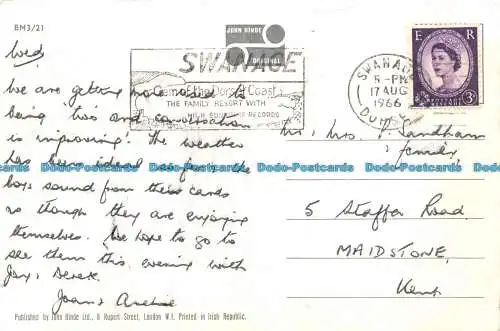 BM3/21
JOHN HINDE
ORIGINAL
SWANAGE
Gem of the Dorset Coast
THE FAMILY RESORT WITH
HIGH SUNSHINE RECORDS
E R
POSTAGE
3D
SWANAGE
5-PM
17 AUG
1966
DORSET
Wed
We are getting more used to
being two and conversation
is improving! The weather
has been ideal so far &
boys sound from their cards
as though they are enjoying
themselves. We hope to go to
see them this evening with
Joy, Derek.
Joan & Archie
Mr, Mrs, Sandham
family,
5 Staffa Road,
MAIDSTONE,
Kent.
Dodo-Postcards Dodo-Postcards Dodo-Postcards Dodo-Postcards
Published by John Hinde Ltd., 8 Rupert Street, London W.1. Printed in Irish Republic.